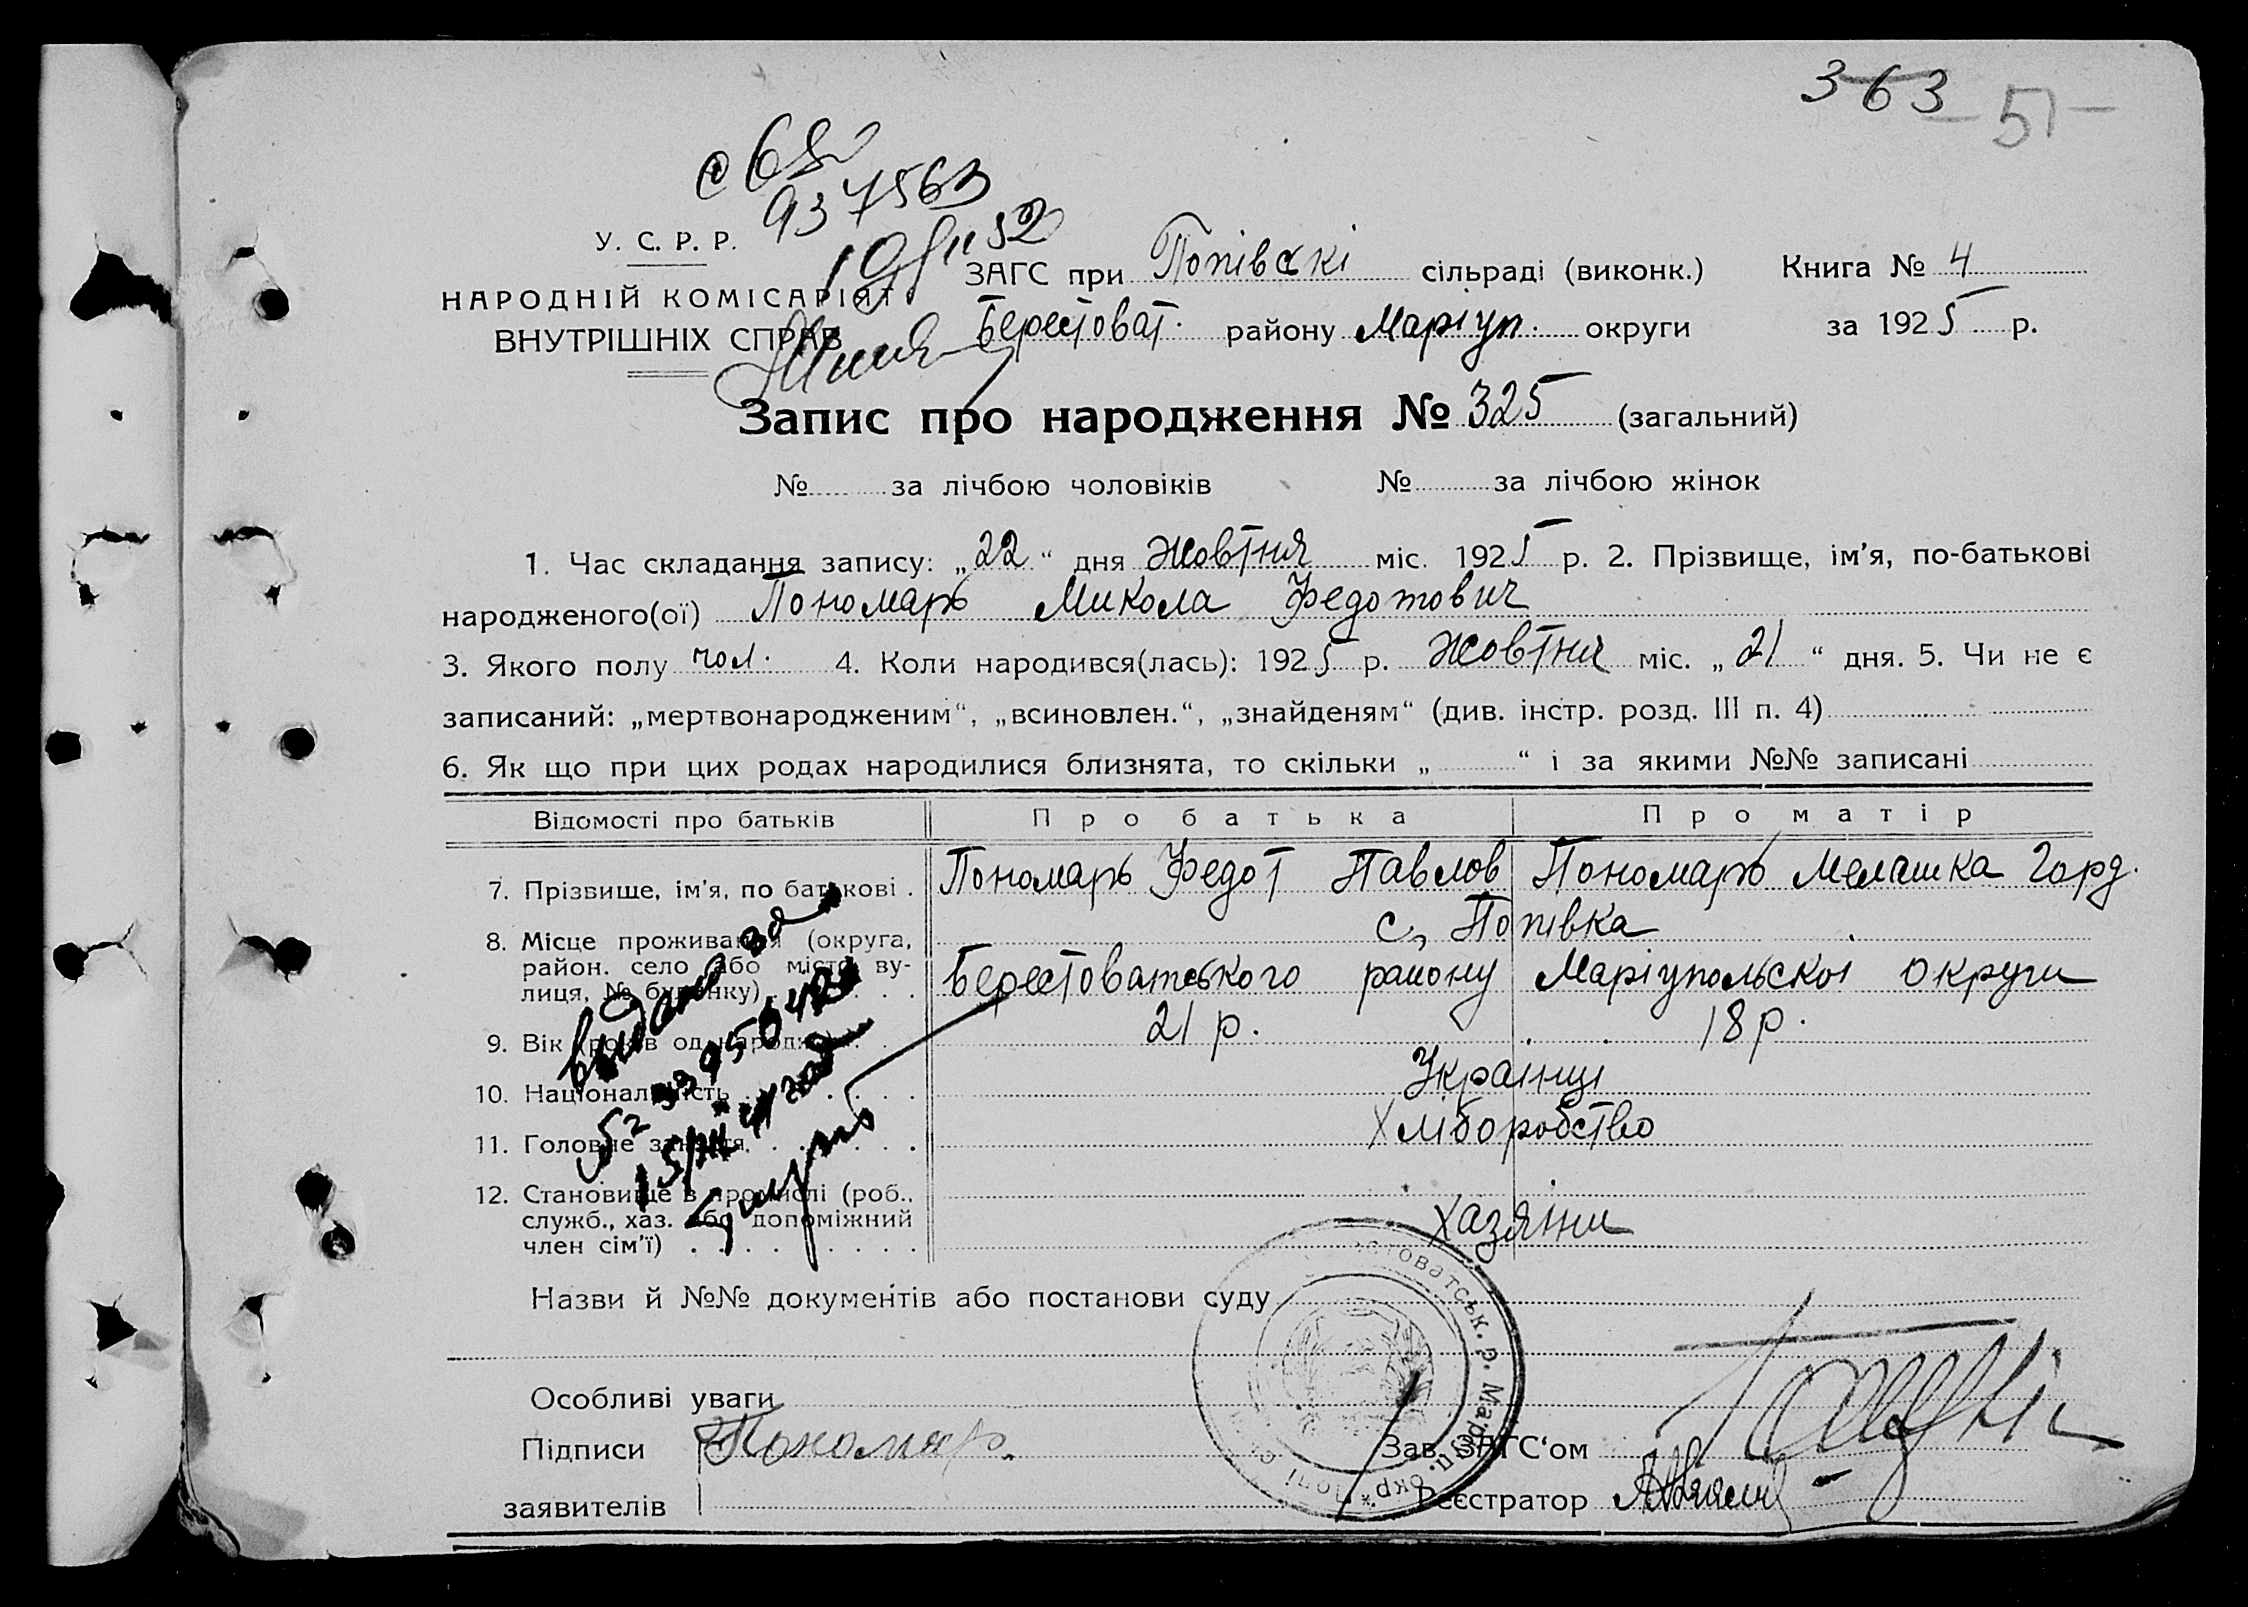 363 51
с 68
937563
У. С. Р. Р.
НАРОДНІЙ КОМІСАРІЯТ
ВНУТРІШНІХ СПРАВ
ЗАГС при Попівскі сільраді (виконк.) Книга № 4
Берестоват. району Маріуп. округи за 1925 р.
Запис про народження № 325 (загальний)
№ за лічбою чоловіків № за лічбою жінок
1. Час складання запису: „22“ дня Жовтня міс. 1925 р. 2. Прізвище, ім'я, по-батькові
народженого(ої) Пономарь Микола Федотович
3. Якого полу чол. 4. Коли народився(лась): 1925 р. Жовтня міс. „21“ дня. 5. Чи не є
записаний: „мертвонародженим“, „всиновлен.“, „знайденям“ (див. інстр. розд. III п. 4)
6. Як що при цих родах народилися близнята, то скільки „ “ і за якими №№ записані
Відомості про батьків Про батька Про матір
7. Прізвище, ім'я, по батькові . Пономарь Федот Павлов Пономарь Мелашка Горд.
8. Місце проживання (округа, с, Попівка
район. село або місто, ву-
лиця, № будинку) Берестоватського району Маріупольскоі округи
9. Вік (років од народж.) 21 р. 18 р.
10. Національність Українці
11. Головне заняття Хліборобство
12. Становище в промислі (роб.,
служб., хаз. або допоміжний Хазяіни
член сім'ї)
выдано
Назви й №№ документів або постанови суду
Особливі уваги
Підписи Пономар.
Зав. ЗАГС'ом
заявителів Реєстратор
стоватськ. р. Маріуп. окр. *